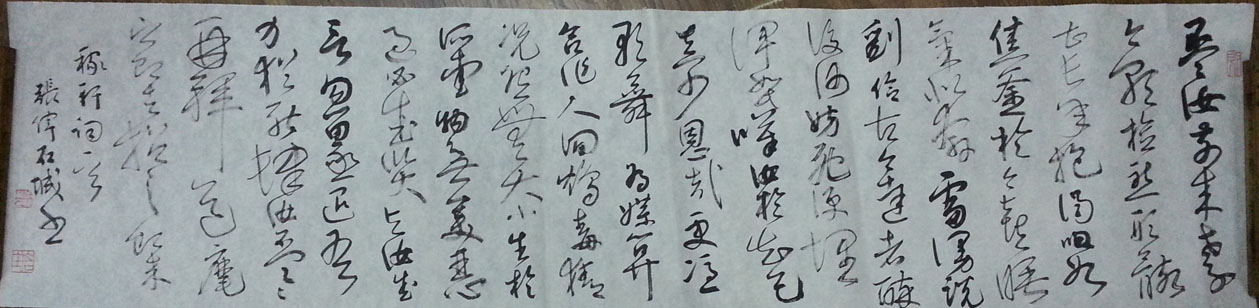 盃汝前来老子
今朝检点形骸
甚长年抱渴咽如
焦釜於今喜睡
气似奔雷漫说
劉伶古今達者醉
後何妨死便埋
浑如此嘆汝於知己
真少恩哉更凭
歌舞為媒算
合作人间鸩毒猜
况怨無大小生於
所爱物無美恶
过则成灾与汝成
言勿留亟退吾
力犹能肆汝盃〻
再拜道麾
之即去招之即来
稼轩词一首
張偉石城书